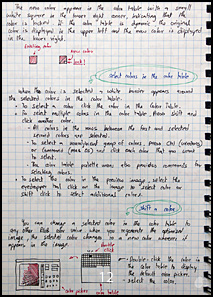 The new color appears in the color table with a small
white square in the lower right corner, indicating that the
color is locked. If the color table is dynamic, the original
color is displayed in the upper left and the new color is displayed
in the lower right.
existing color
new color
lock!
select colors in the color table
When the color is selected a white border appears around
the selected colors in the color table.
• To select a color click the color in the Color Table.
• To select multiple colors in the color table press shift and
click another color.
• All colors in the rows between the first and selected
second colors are selected.
• To select a nonadjacent group of colors press Ctrl (windows)
or Command (Mac OS) and click each color that you want
to select.
• The color table palette menu also provides commands for
selecting colors.
• To select the color in the preview image, select the
eyedropper tool click on the image to select color or
shift click to select additional colors.
12
Shift a color
You can change a selected color in the color table to
any other RGB color value when you regenerate the optimized
image, the selected color changes to the new color wherever it
appears in the image.
double click
• Double-click the color in
the color table to display
the default color picker.
• Select the color.
color picker
color table